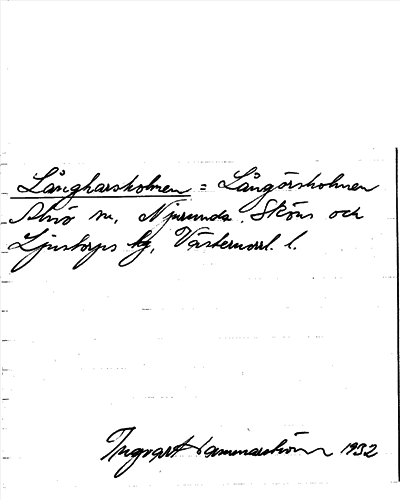 Långharsholmen = Långörsholmen
Alnö sn, Njurunda, Sköns och
Ljustorps tg, Västernorrl. l.
Ingvart Hammarström 1932